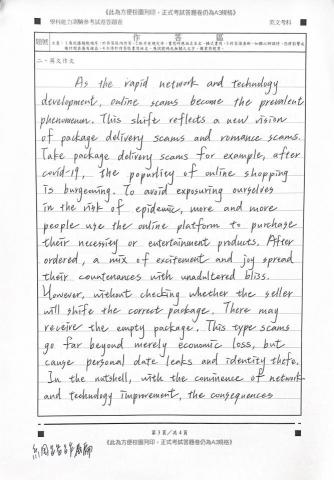 《此為方便校園列印，正式考試答題卷仍為A3規格》
學科能力測驗參考試卷答題卷
英文考科
作 答 區
題號
二、英文作文
As the rapid network and technology
development, online scams become the prevalent
phenomenon. This shift reflects a new vision
of package delivery scams and romance scams.
Take package delivery scams for example, after
covid-19, the popurlity of online shopping
is burgeoning. To avoid exposuring ourselves
in the risk of epidemic, more and more
people use the online platform to purchase
their necessity or entertainment products. After
ordered, a mix of excitement and joy spread
their countenances with unadultered bliss.
However, without checking whether the seller
will shife the correct package. There may
receive the empty package. This type scams
go far beyond merely economic loss, but
cause personal date leaks and identity thefe.
In the nutshell, with the commence of network
and technology improvement, the consequences
第 3 頁 / 共 4 頁
《此為方便校園列印，正式考試答題卷仍為A3規格》